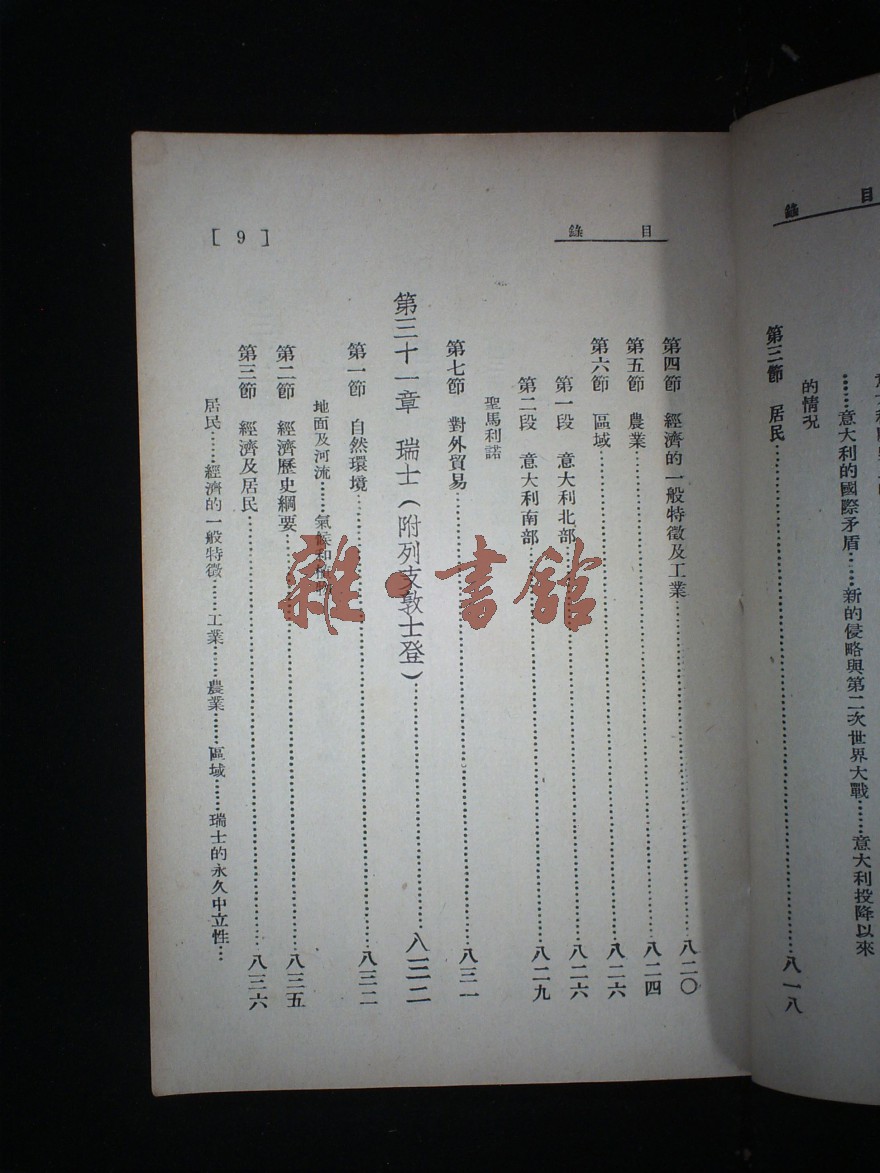 目錄
第三節 居民……八一八
的情況
……意大利的國際矛盾……新的侵略與第二次世界大戰……意大利投降以來
目錄
[ 9 ]
第四節 經濟的一般特徵及工業……八二〇
第五節 農業……八二四
第六節 區域……八二六
第一段 意大利北部……八二六
第二段 意大利南部……八二九
聖馬利諾
第七節 對外貿易……八三一
第三十一章 瑞士(附列支敦士登)……八三二
第一節 自然環境……八三二
地面及河流……氣候和
第二節 經濟歷史綱要……八三五
第三節 經濟及居民……八三六
居民……經濟的一般特徵……工業……農業……區域……瑞士的永久中立性……
雜·書館